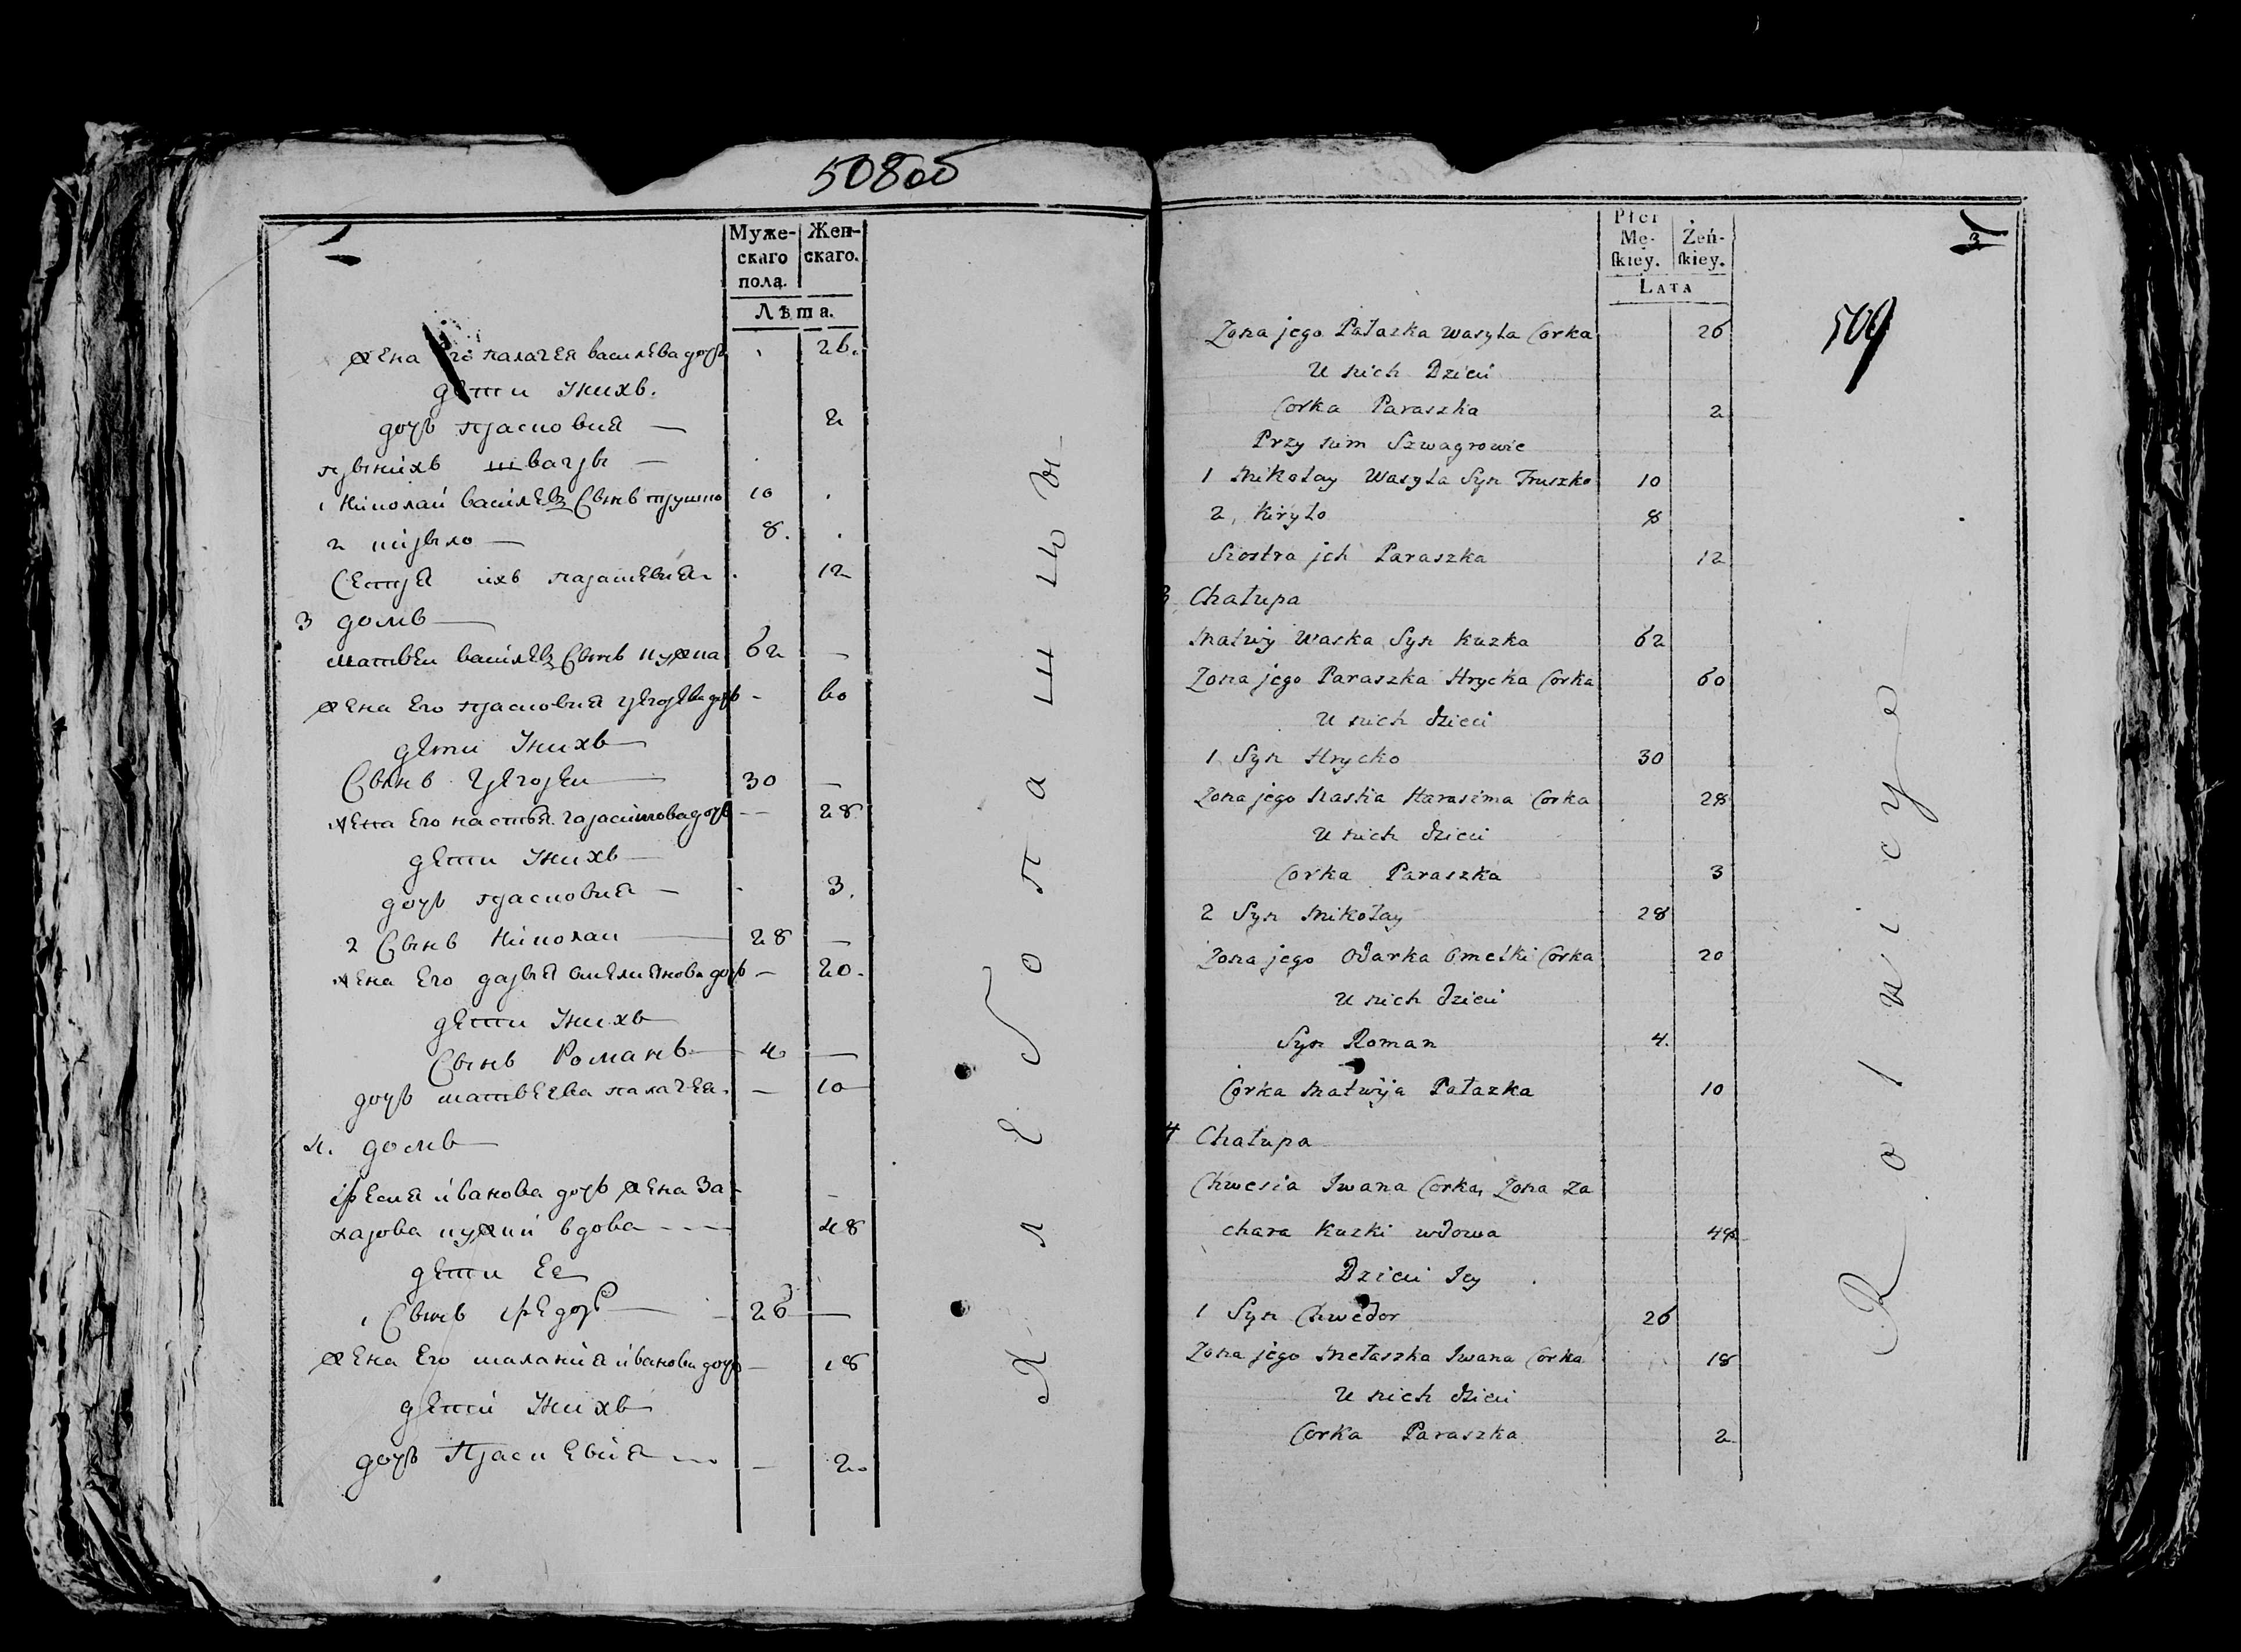 508об
Муже-
скаго
пола.
Жен-
скаго.
Лѣта.
жена его палагея василева дочь 26.
дети унихъ.
дочь прасковия — 2
швагры —
1 николай василев сынъ трушко 10
2 кирыло — 8.
сестра ихъ парашкевия 12
3 домъ
матвеи василев сынъ кужка 62 —
жена его прасковия григорева дочь - 60
дети унихъ
сынъ григореи 30 —
жена его настья гарасимова дочь — 28
дети унихъ
дочь прасковия — 3.
2 сынъ николаи 28 —
жена его дарья омелиянова дочь — 20.
дети унихъ
сынъ Романъ 4 —
дочь матвеева палагея. — 10
4. домъ
фесия иванова дочь жена за
харова кужки вдова 48
дети ее
1 сынъ федоръ 26 —
жена его малания иванова дочь — 18
дети унихъ
дочь Праскевия — 2
Хлебопашцы
3
509
Płci
Mę-
ſkiey.
Żeń-
ſkiey.
LATA
Zona jego Pałazka Wasyla Corka 26
U nich Dzieci
Corka Paraszka 2
Przy nim Szwagrowie
1 Mikołay Wasyla Syn Truszko 10
2, Kiryło 8
Siostra jch Paraszka 12
3 Chałupa
Matwiy Waska Syn Kuzka 62
Zona jego Paraszka Hrycka Corka 60
U nich dzieci
1 Syn Hrycko 30
Zona jego Nastia Harasima Corka 28
U nich dzieci
Corka Paraszka 3
2 Syn Mikołay 28
Zona jego Odarka Omelki Corka 20
U nich dzieci
Syn Roman 4.
Corka Matwija Pałazka 10
4 Chałupa
Chwesia Jwana Corka, Zona Za
chara Kuzki wdowa 48
Dzieci Jey
1 Syn Chwedor 26
Zona jego Mełaszka Jwana Corka 18
U nich dzieci
Corka Paraszka 2
Rolnicy